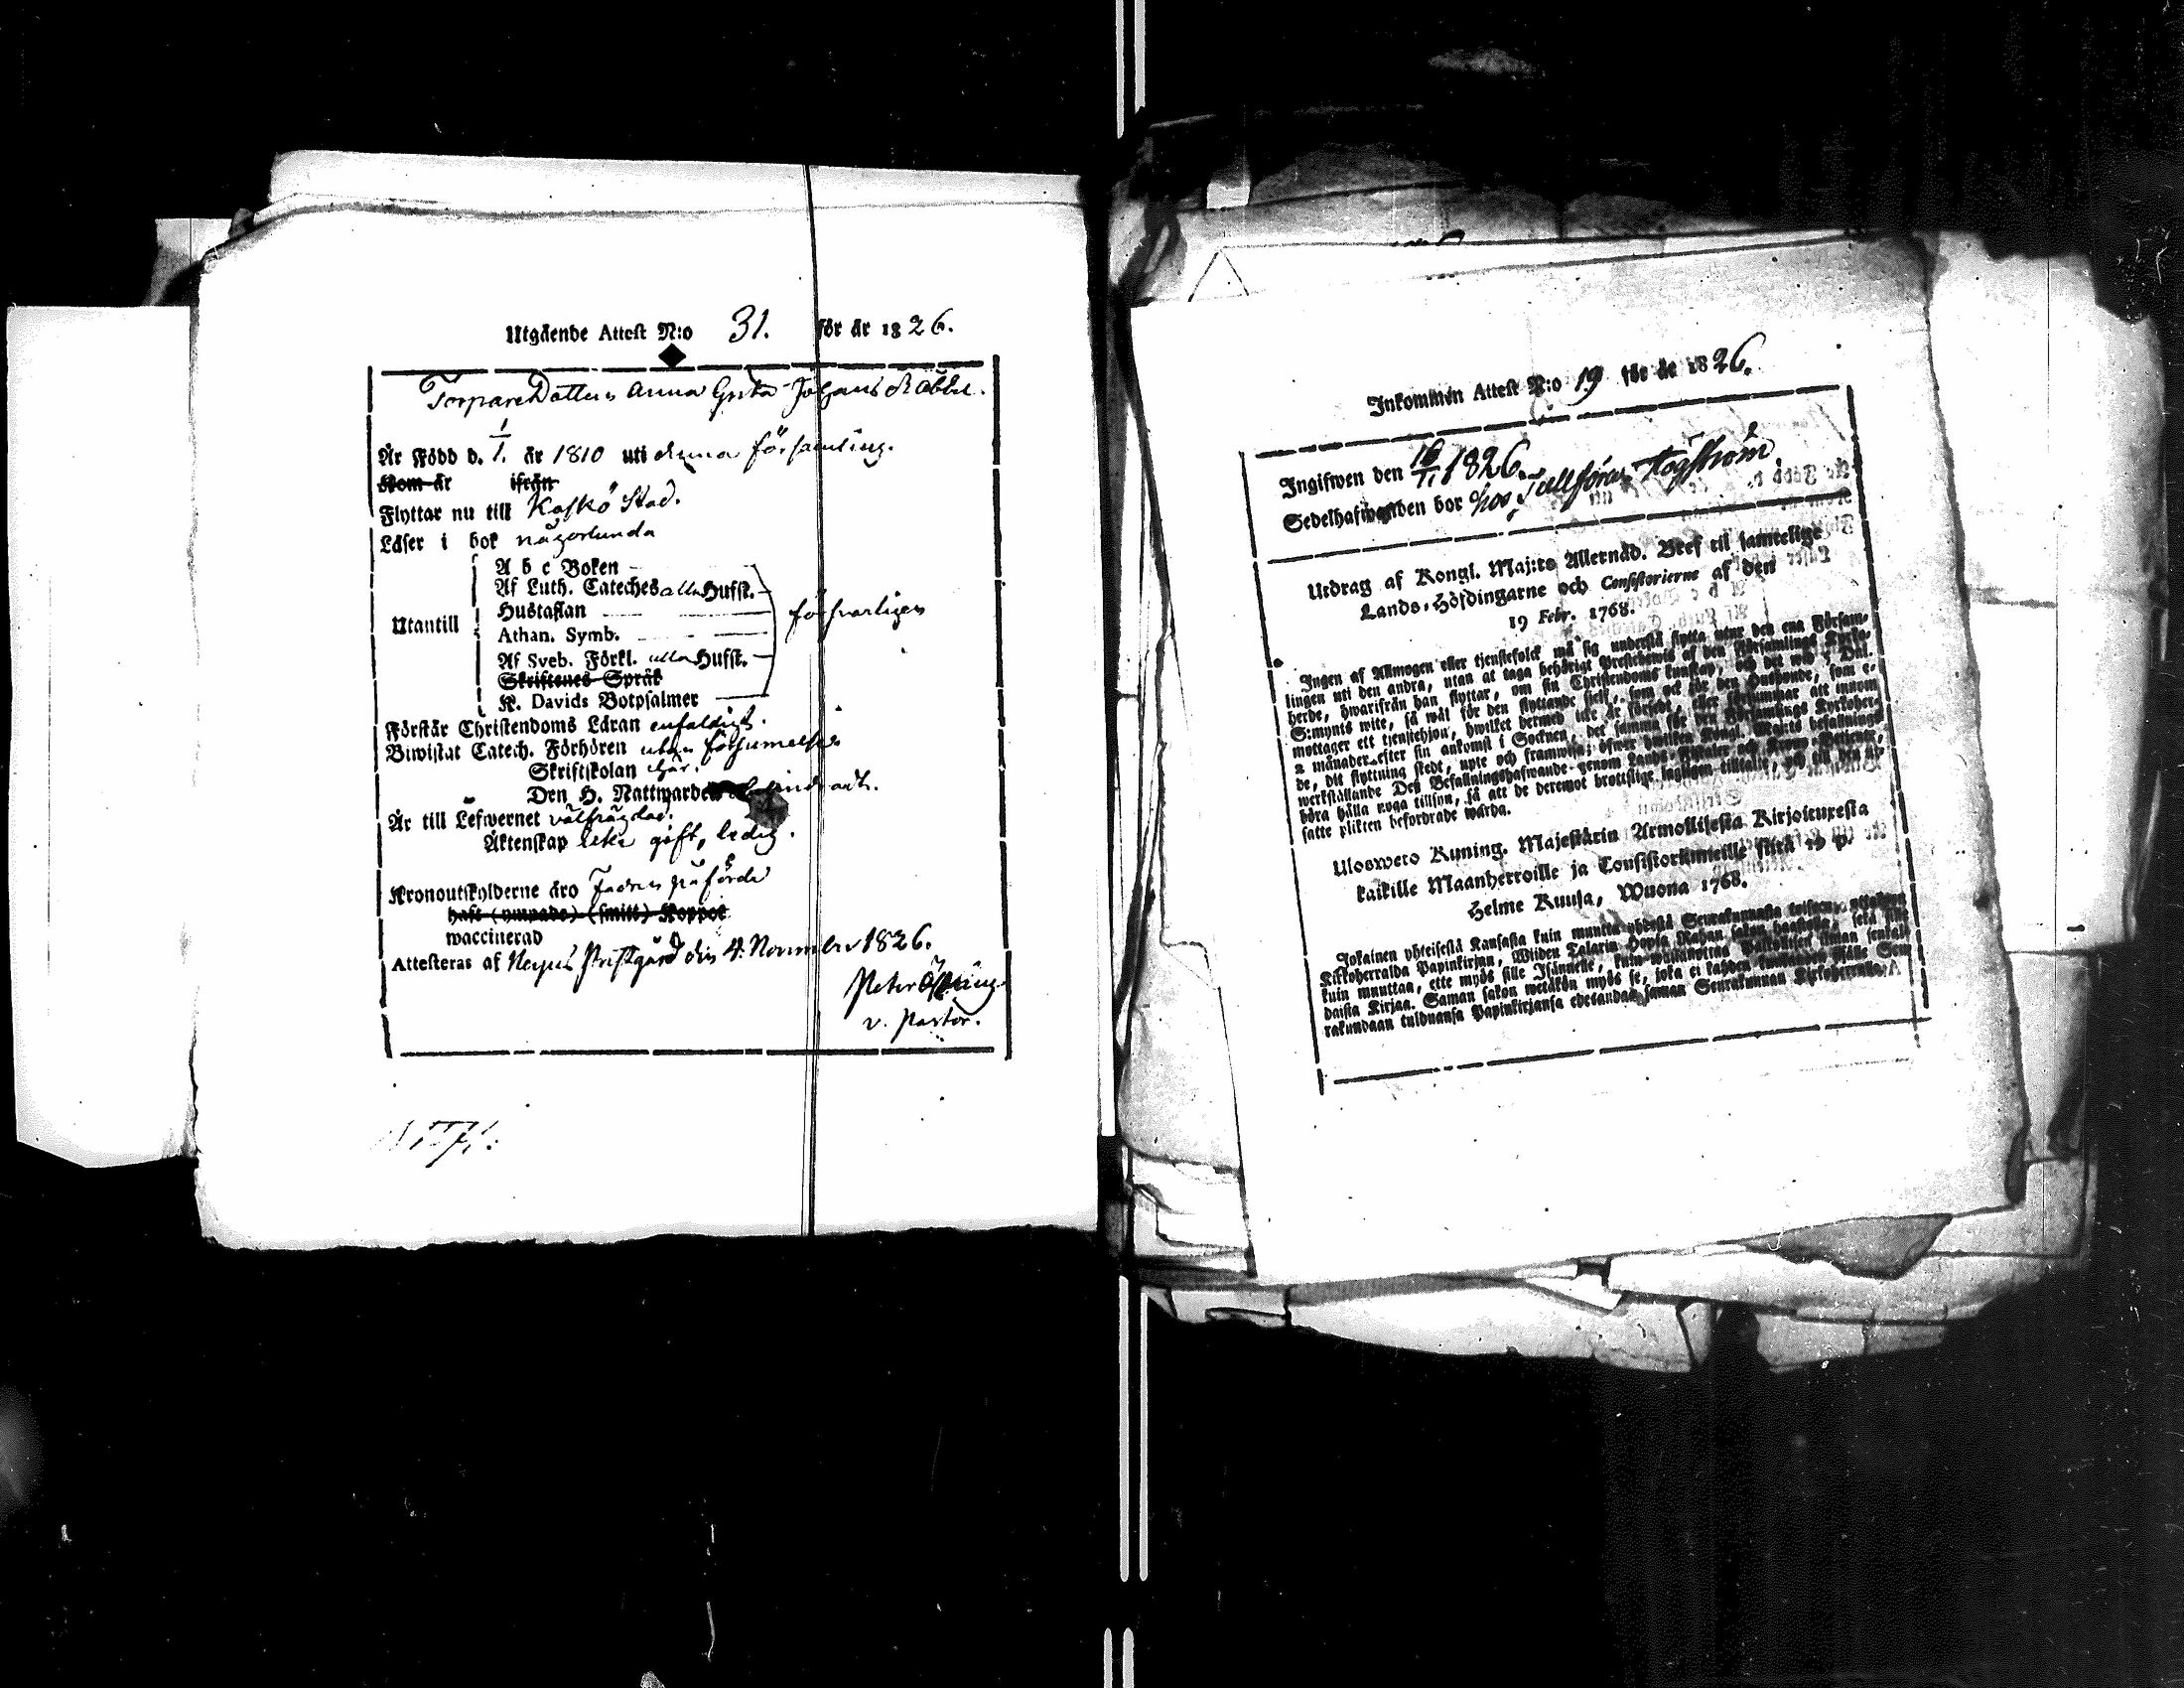 Utgående Attest N:o 31. för år 1826.
Torpare Dottern Anna Greta Johans Rabbe.
Är Född d. 1/1. år 1810 uti denna församling.
Kom år ifrån
Flyttar nu till Kaskö Stad.
Läser i bok någorlunda
A b c Boken
Af Luth. Cateches alla Hufst.
Hustaflan
Utantill
försvarligen
Athan. Symb.
Af Sveb. Förkl. alla Hufst.
Skriftenes Språk
K. Davids Botpsalmer
Förstår Christendoms Läran enfaldigt.
Biwistat Catech. Förhören utan försummelse
Skriftskolan här.
Den H. Nattwarden
Är till Lefwernet välfrägdad.
Äktenskap icke gift, ledig.
Kronoutskylderne äro Fadren påförde
haft (ympade) (smitt) Koppor
waccinerad
Attesteras af Nerpes Prestgård den 4. November 1826.
Peter
v. Pastor.
Inkommen Attest N:o 19 för år 1826.
Ingifwen den 16/11 1826.
Sedelhafwanden bor hos Tullförer Högström
Utdrag af Kongl. Maj:ts Allernåd. Bref til samtelige
Lands-Höfdingarne och Consistorierne af den
19 Febr. 1768.
Ingen af Allmogen eller tjenstefolck må sig understå flytta utur den ena Försam-
lingen uti den andra, utan at taga behörigt Prestebewis af den Församlings Kyrko-
herde, hwarifrån han flyttar, om sin Christendoms kunskap, och det wid 5 Dal.
S:mynts wite, så wäl för den flyttande sjelf, som ock för den Husbonde, som e-
mottager ett tjenstehjon, hwilket dermed icke är försedt, eller försummar att innom
2 månader efter sin ankomst i Socknen, det samma för den Församlings Kyrkoher-
de, dit flyttning skedt, upte och framwisa; öfwer hwilken Kongl. Maj:ts befallnings
werkställande Des Befallningshafwande genom Lands-Fiskaler och Krono-Betjenter,
böra hålla noga tillsyn, så att de deremot brottslige lagligen tilltalte, och till den ut-
satte plikten befordrade warda.
Ulosweto Kuning. Majestätin Armollisesta Kirjoituxesta
kaikille Maanherroille ja Consistoriumeille siitä 19 p.
Helme Kuusa, Wuona 1768.
Jokainen yhteisestä Kansasta kuin muutta yhdestä Seurakunnasta toiseen, ottakoon
Kirkoherralda Papinkirjan, Wiiden Talarin Hopia Rahan sakon haastolla, sekä sille
kuin muuttaa, ette myös sille Isännelle, kuin wastanottaa Palkollisen ilman senkal-
daista Kirjaa. Saman sakon wetäkön myös se, joka ei kahden kuukauden sisälle Seu-
rakundaan tulduansa Papinkirjansa edesandaa saman Seurakunnan Kirkoherralle.